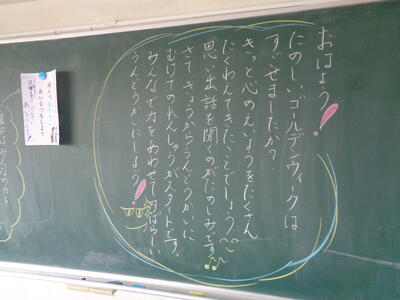 おはよう!
たのしいゴールデンウィークは
すごせましたか?
きっと心のえいようをたくさん
たくわえてきたことでしょう。
思い出話を聞くのがたのしみです。
さて、きょうからうんどうかいに
むけてのれんしゅうがスタートです。
みんなで力をあわせてすばらしい
うんどうかいにしよう!